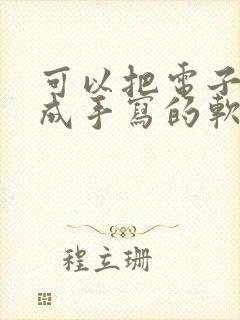 可以把電子
成手寫的軟
程立珊